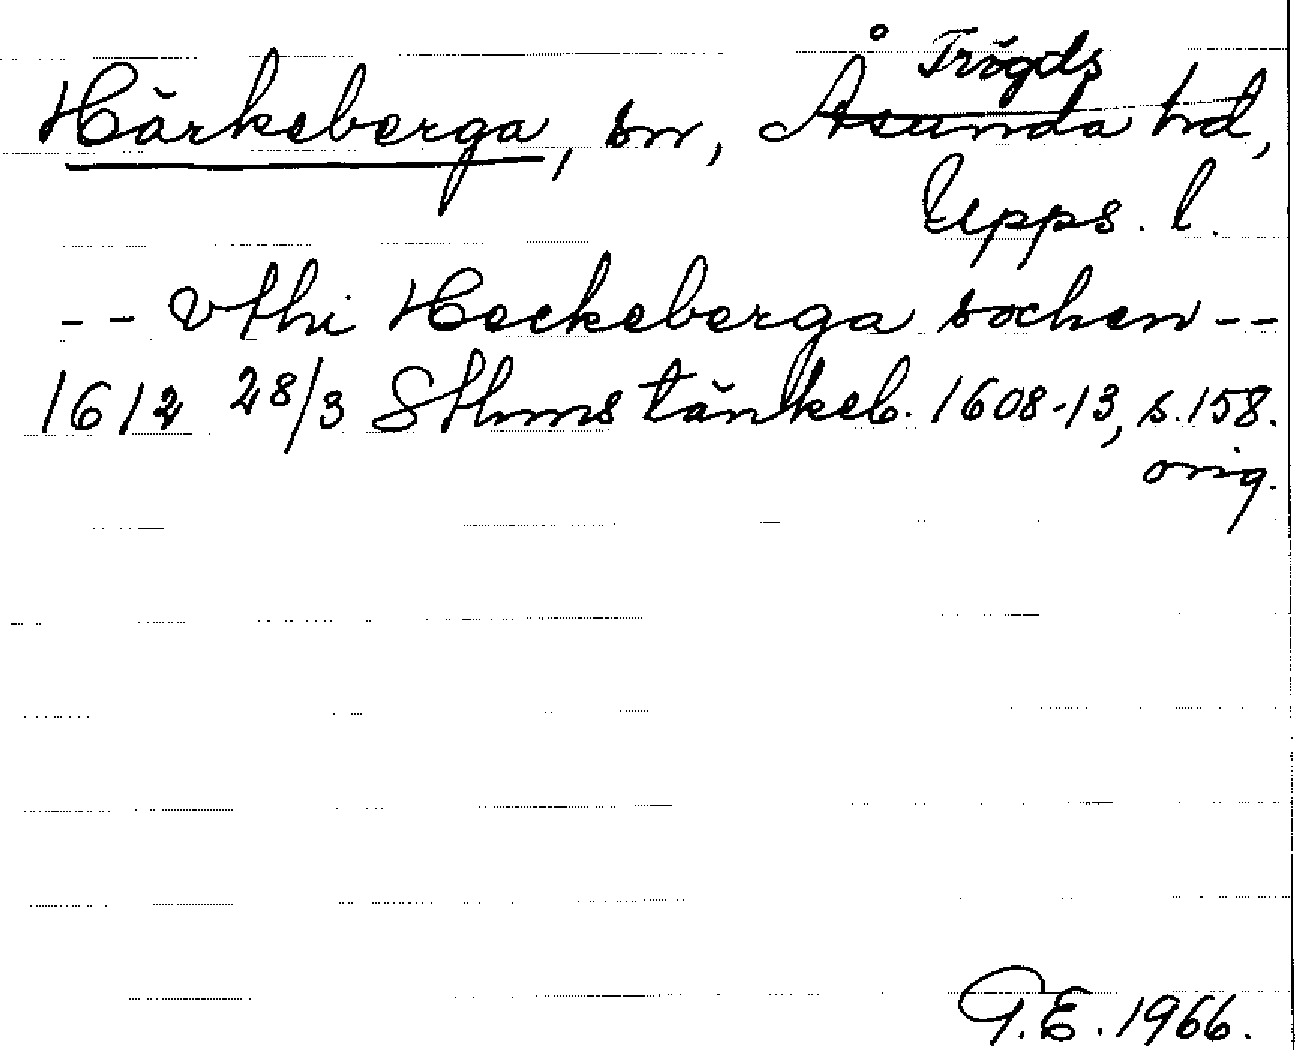 Trögds
Härkeberga, sn, Åsunda hd,
Upps. l.
-- vthi Heckeberga sochen --
1612 28/3 Sthms tänkeb. 1608-13, s. 158.
orig.
G.E. 1966.